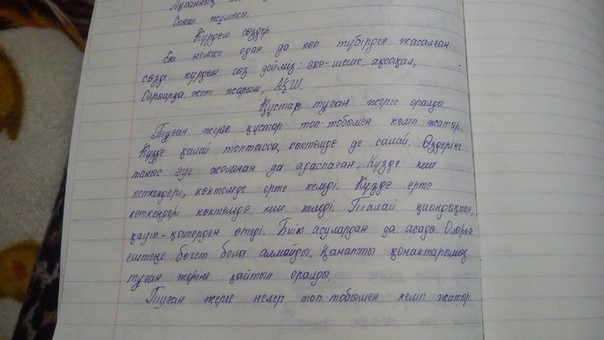 Сөнап жұмысы.
Күрделі сөздер
Екі немесе одан да көп түбірден жасалған
сөзді күрделі сөз дейміз: әке-шеше, ақсақал,
Сарыарқа, жеті жарым, АҚШ.
Құстар туған жерге оралды.
Туған жерге құстар топ-тобымен келіп жатыр.
Күзде қалай топтасса, көктемде де солай. Өздеріне
таныс әуе жолынан да адаспаған. Күзде кеш
кеткендері, көктемде ерте келді. Күзде ерте
кеткендері көктемде кеш келді. Талай қиындықтан,
қауіп-қатерден өтеді. Биік асулардан да асады. Оларға
ештеңе бөгет бола алмайды. Қанатты қонақтарымыз
туған жеріне қайтып оралды.
Туған жерге нелер топ-тобымен келіп жатыр.